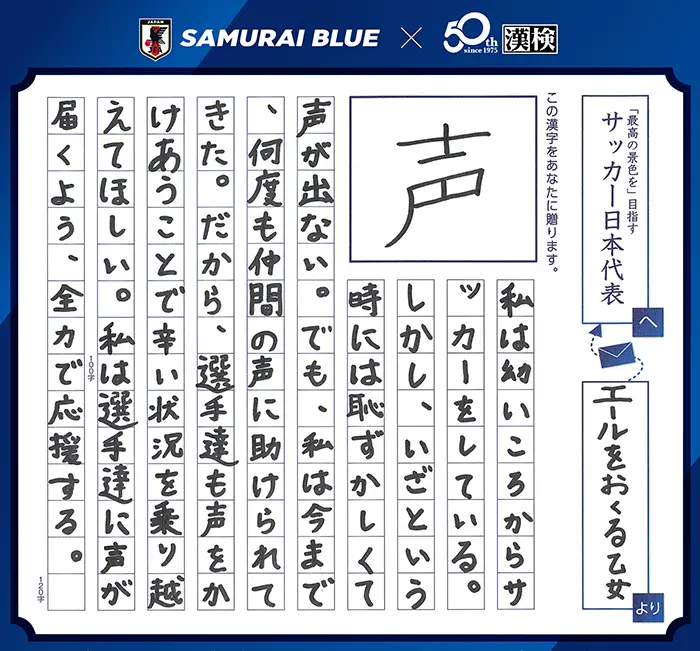 JAPAN
JFA
SAMURAI BLUE × 50th since 1975 漢検
「最高の景色を」目指す
サッカー日本代表
へ
エールをおくる乙女
より
この漢字をあなたに贈ります。
声
私は幼いころからサ
ッカーをしている。
しかし、いざという
時には恥ずかしくて
声が出ない。でも、私は今まで
、何度も仲間の声に助けられて
きた。だから、選手達も声をか
けあうことで辛い状況を乗り越
えてほしい。私は選手達に声が
100字
届くよう、全力で応援する。
120字